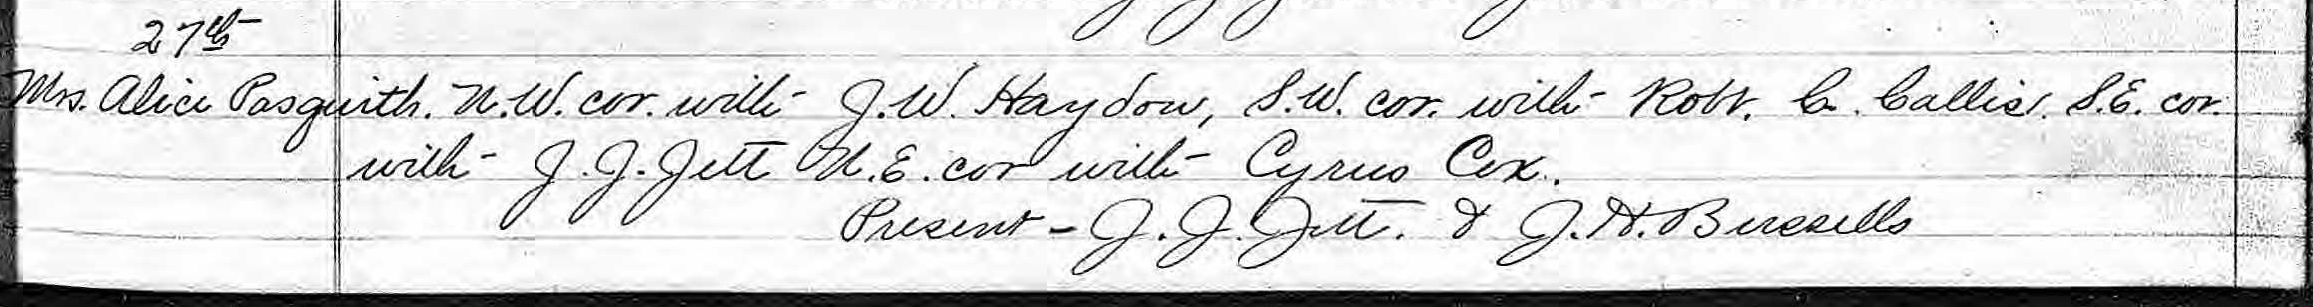 27th
Mrs. Alice Pasquith. N.W. cor. with J.W. Haydon, S.W. cor. with Robt. C. Callis. S.E. cor.
with J.J. Jett N.E. cor with Cyrus Cox.
Present - J.J. Jett. & J.H. Bussells